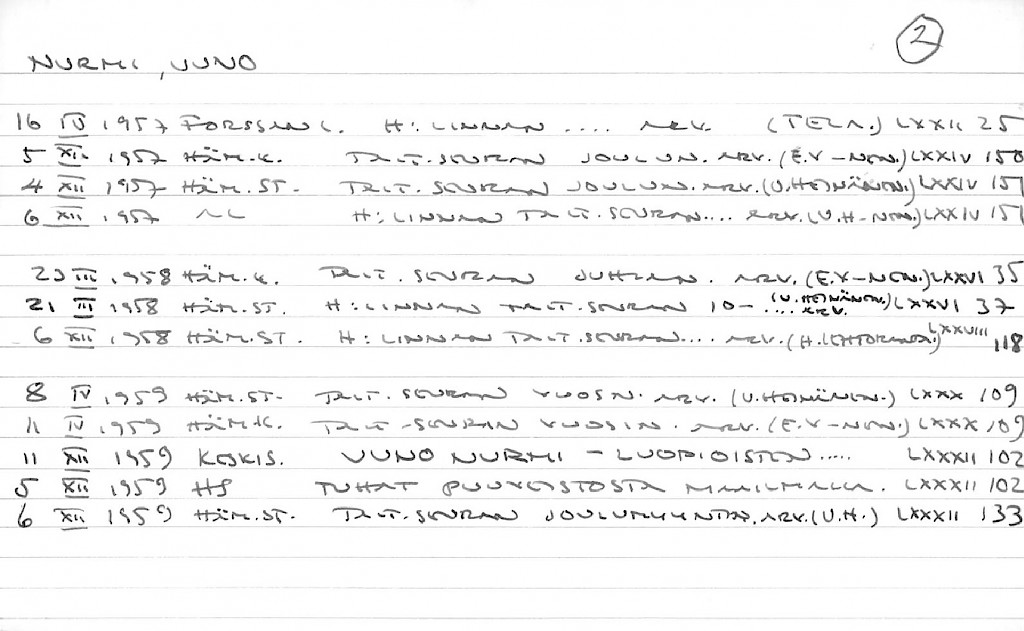 2
NURMI, JUNO
16 IV 1957 FORSSAN L. H:LINNAN .... ARV. (TELA.) LXXII 25
5 XII 1957 HÄM.K. TAIT.SEURAN JOULUN. ARV. (E.V-NEN.) LXXIV 150
4 XII 1957 HÄM.ST. TAIT. SEURAN JOULUN. ARV. (U.HEINÄNEN.) LXXIV 151
6 XII 1957 AL H:LINNAN TAIT.SEURAN.... ARV. (U.H-NEN.) LXXIV 151
23 III 1958 HÄM.K. TAIT. SEURAN JUHLAN. ARV. (E.V-NEN.) LXXVI 35
21 III 1958 HÄM.ST. H:LINNAN TAIT.SEURAN 10- .... ARV. (U.HEINÄNEN.) LXXVI 37
6 XII 1958 HÄM.ST. H:LINNAN TAIT.SEURAN.... ARV. (H.LEHTORANTA.) LXXVIII 118
8 IV 1959 HÄM.ST. TAIT.SEURAN VUOSN. ARV. (U.HEINÄNEN.) LXXX 109
11 IV 1959 HÄM.K. TAIT-SEURAN VUOSIN. ARV. (E.V-NEN.) LXXX 109
11 XII 1959 KESKIS. JUNO NURMI - LUOPIOISTEN ..... LXXXII 102
5 XII 1959 HS TUHAT PUUVEISTOSTA MAAILMALLA. LXXXII 102
6 XII 1959 HÄM.ST. TAIT.SEURAN JOULUMYYNTIN. ARV. (U.H.) LXXXII 133